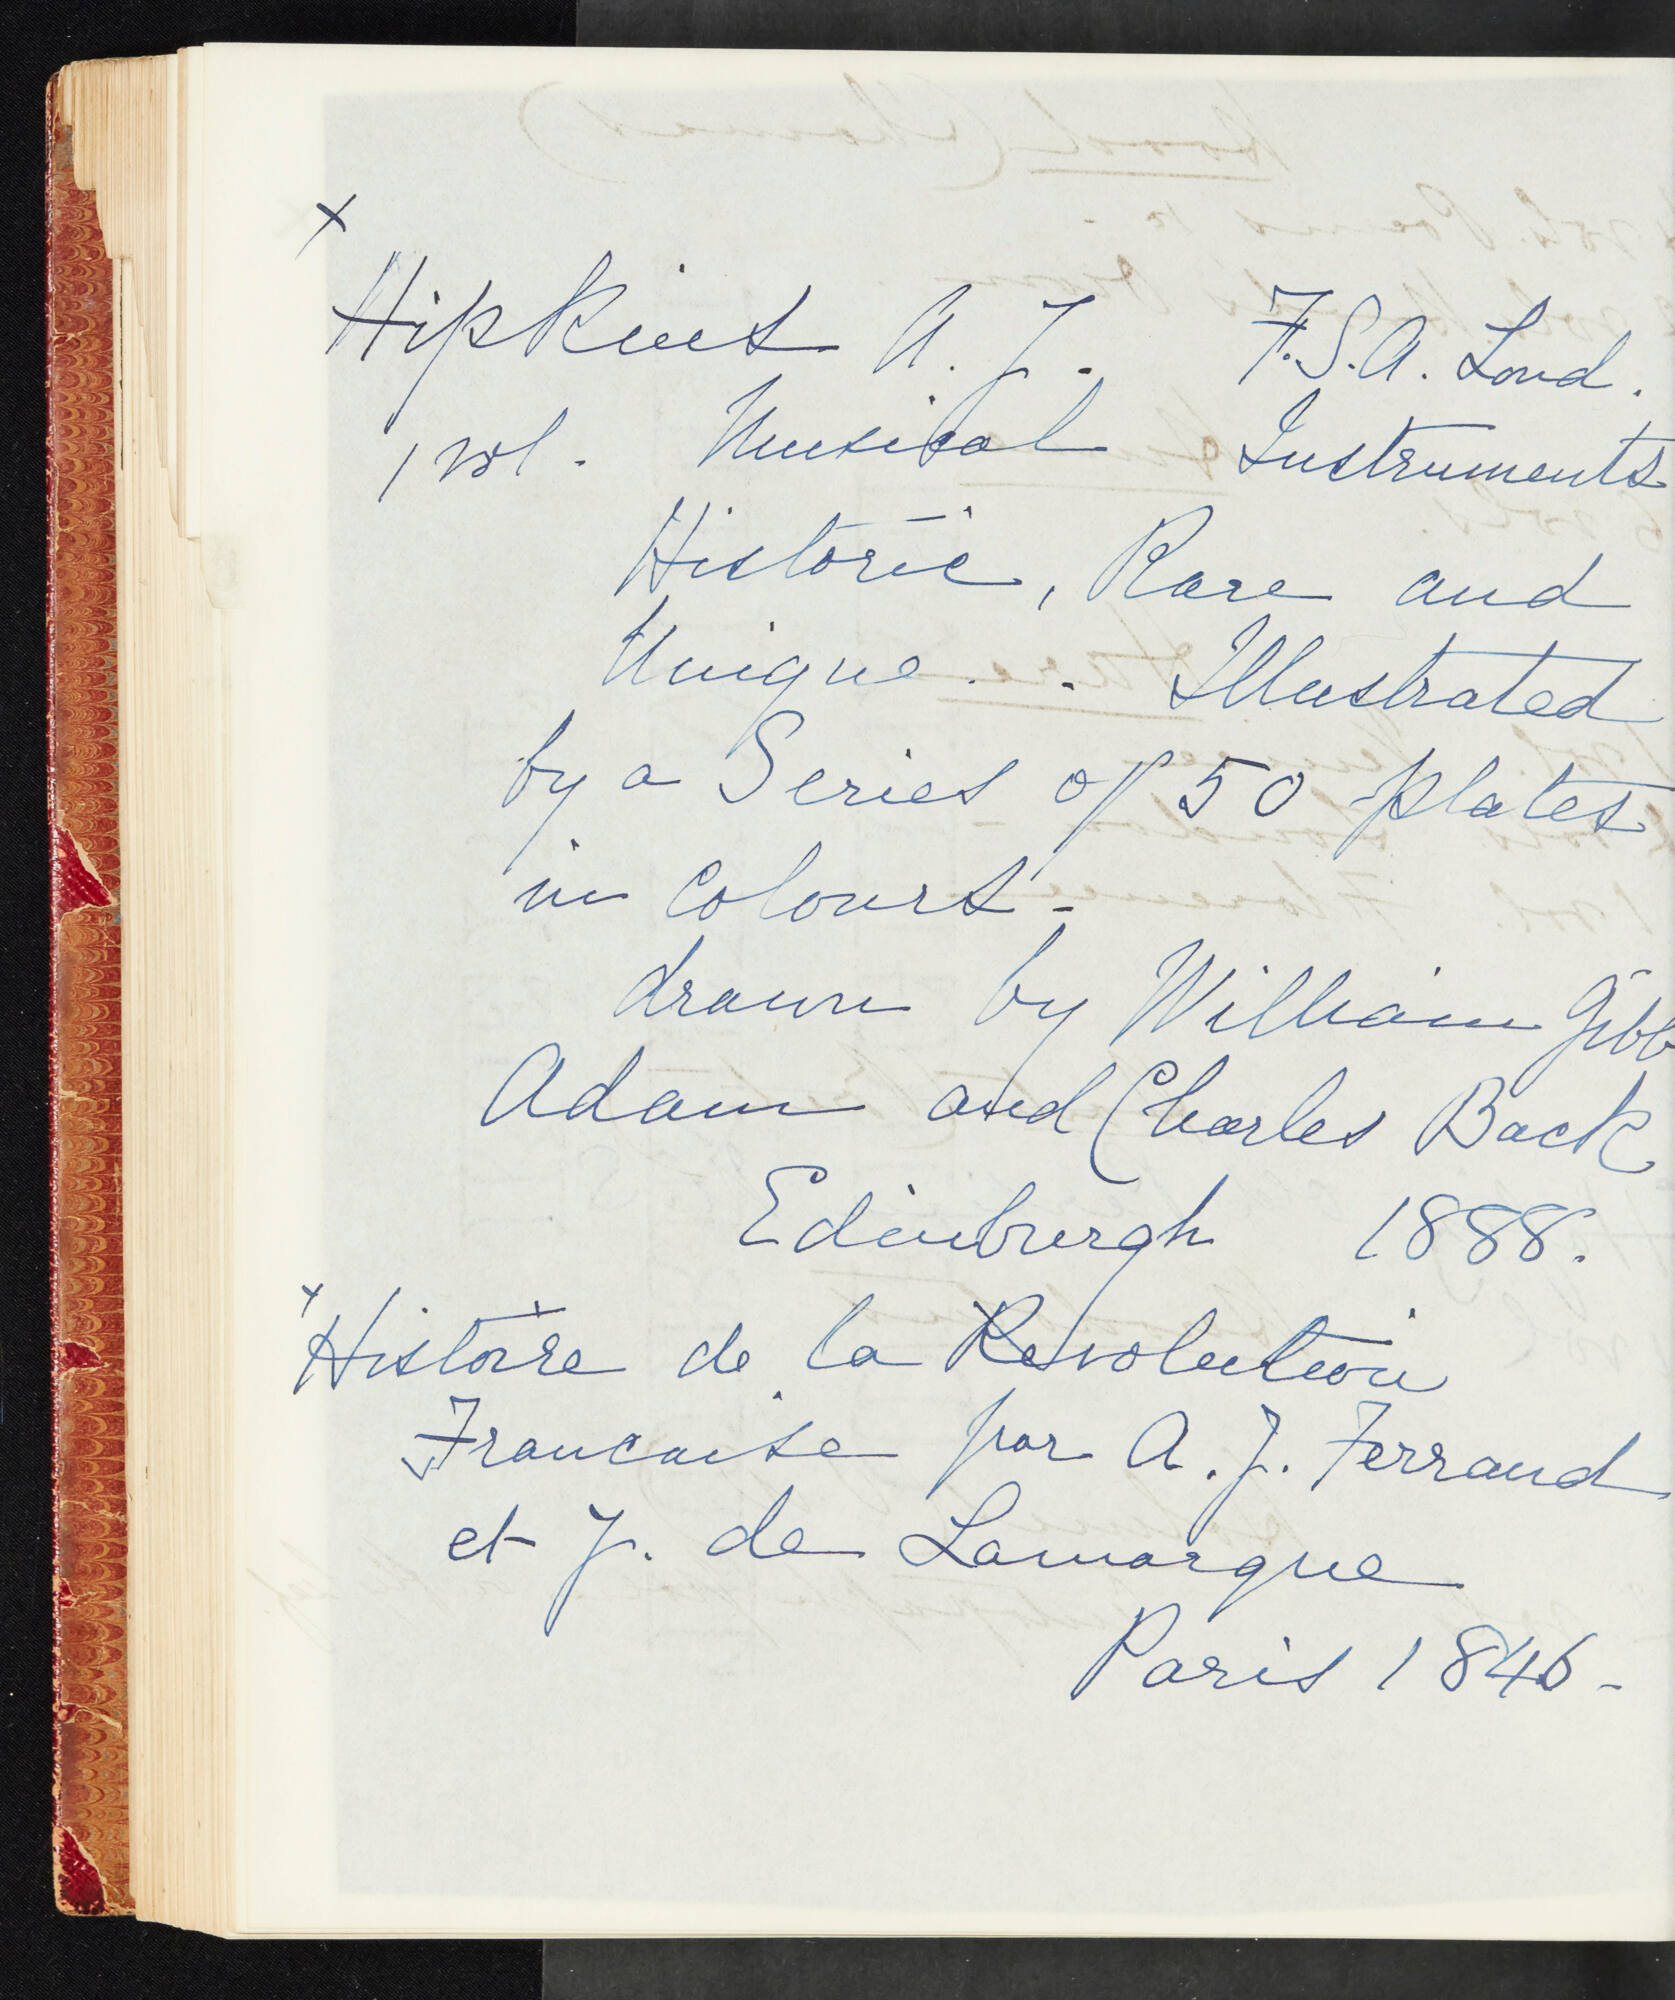 x
Hipkins A. J. F.S.A. Lond.
1 vol. Musical Instruments
Historic, Rare and
Unique. - Illustrated
by a Series of 50 plates
in colours -
drawn by William Gibb
Adam and Charles Back
Edinburgh 1888.
x
Histoire de la Revolution
Francaise par A. J. Ferrand
et J. de Lamarque
Paris 1846 -